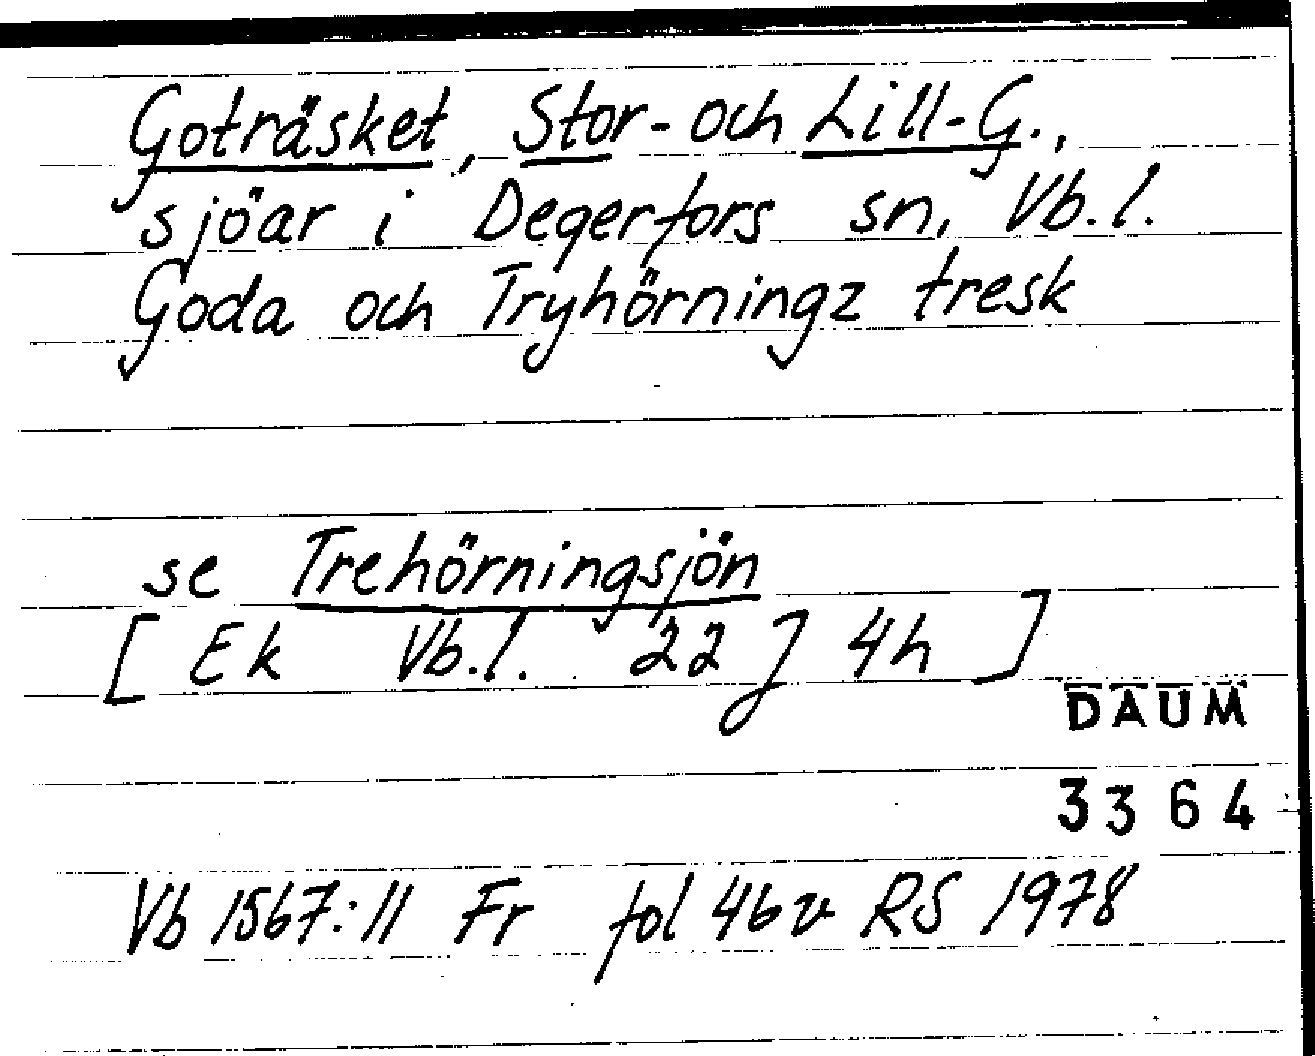 Goträsket, Stor- och Lill-G.,
sjöar i Degerfors sn, Vb.l.
Goda och Tryhörningz tresk
se Trehörningsjön
[Ek Vb.l. 22 J 4h]
DAUM
3364
Vb 1567:11 Fr fol 46v RS 1978